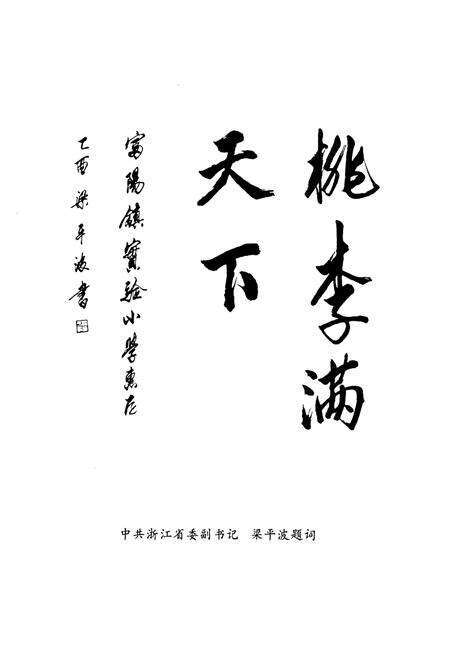 桃李满
天下
富陽鎮實验小學惠存
乙酉梁平波書
中共浙江省委副书记 梁平波题词